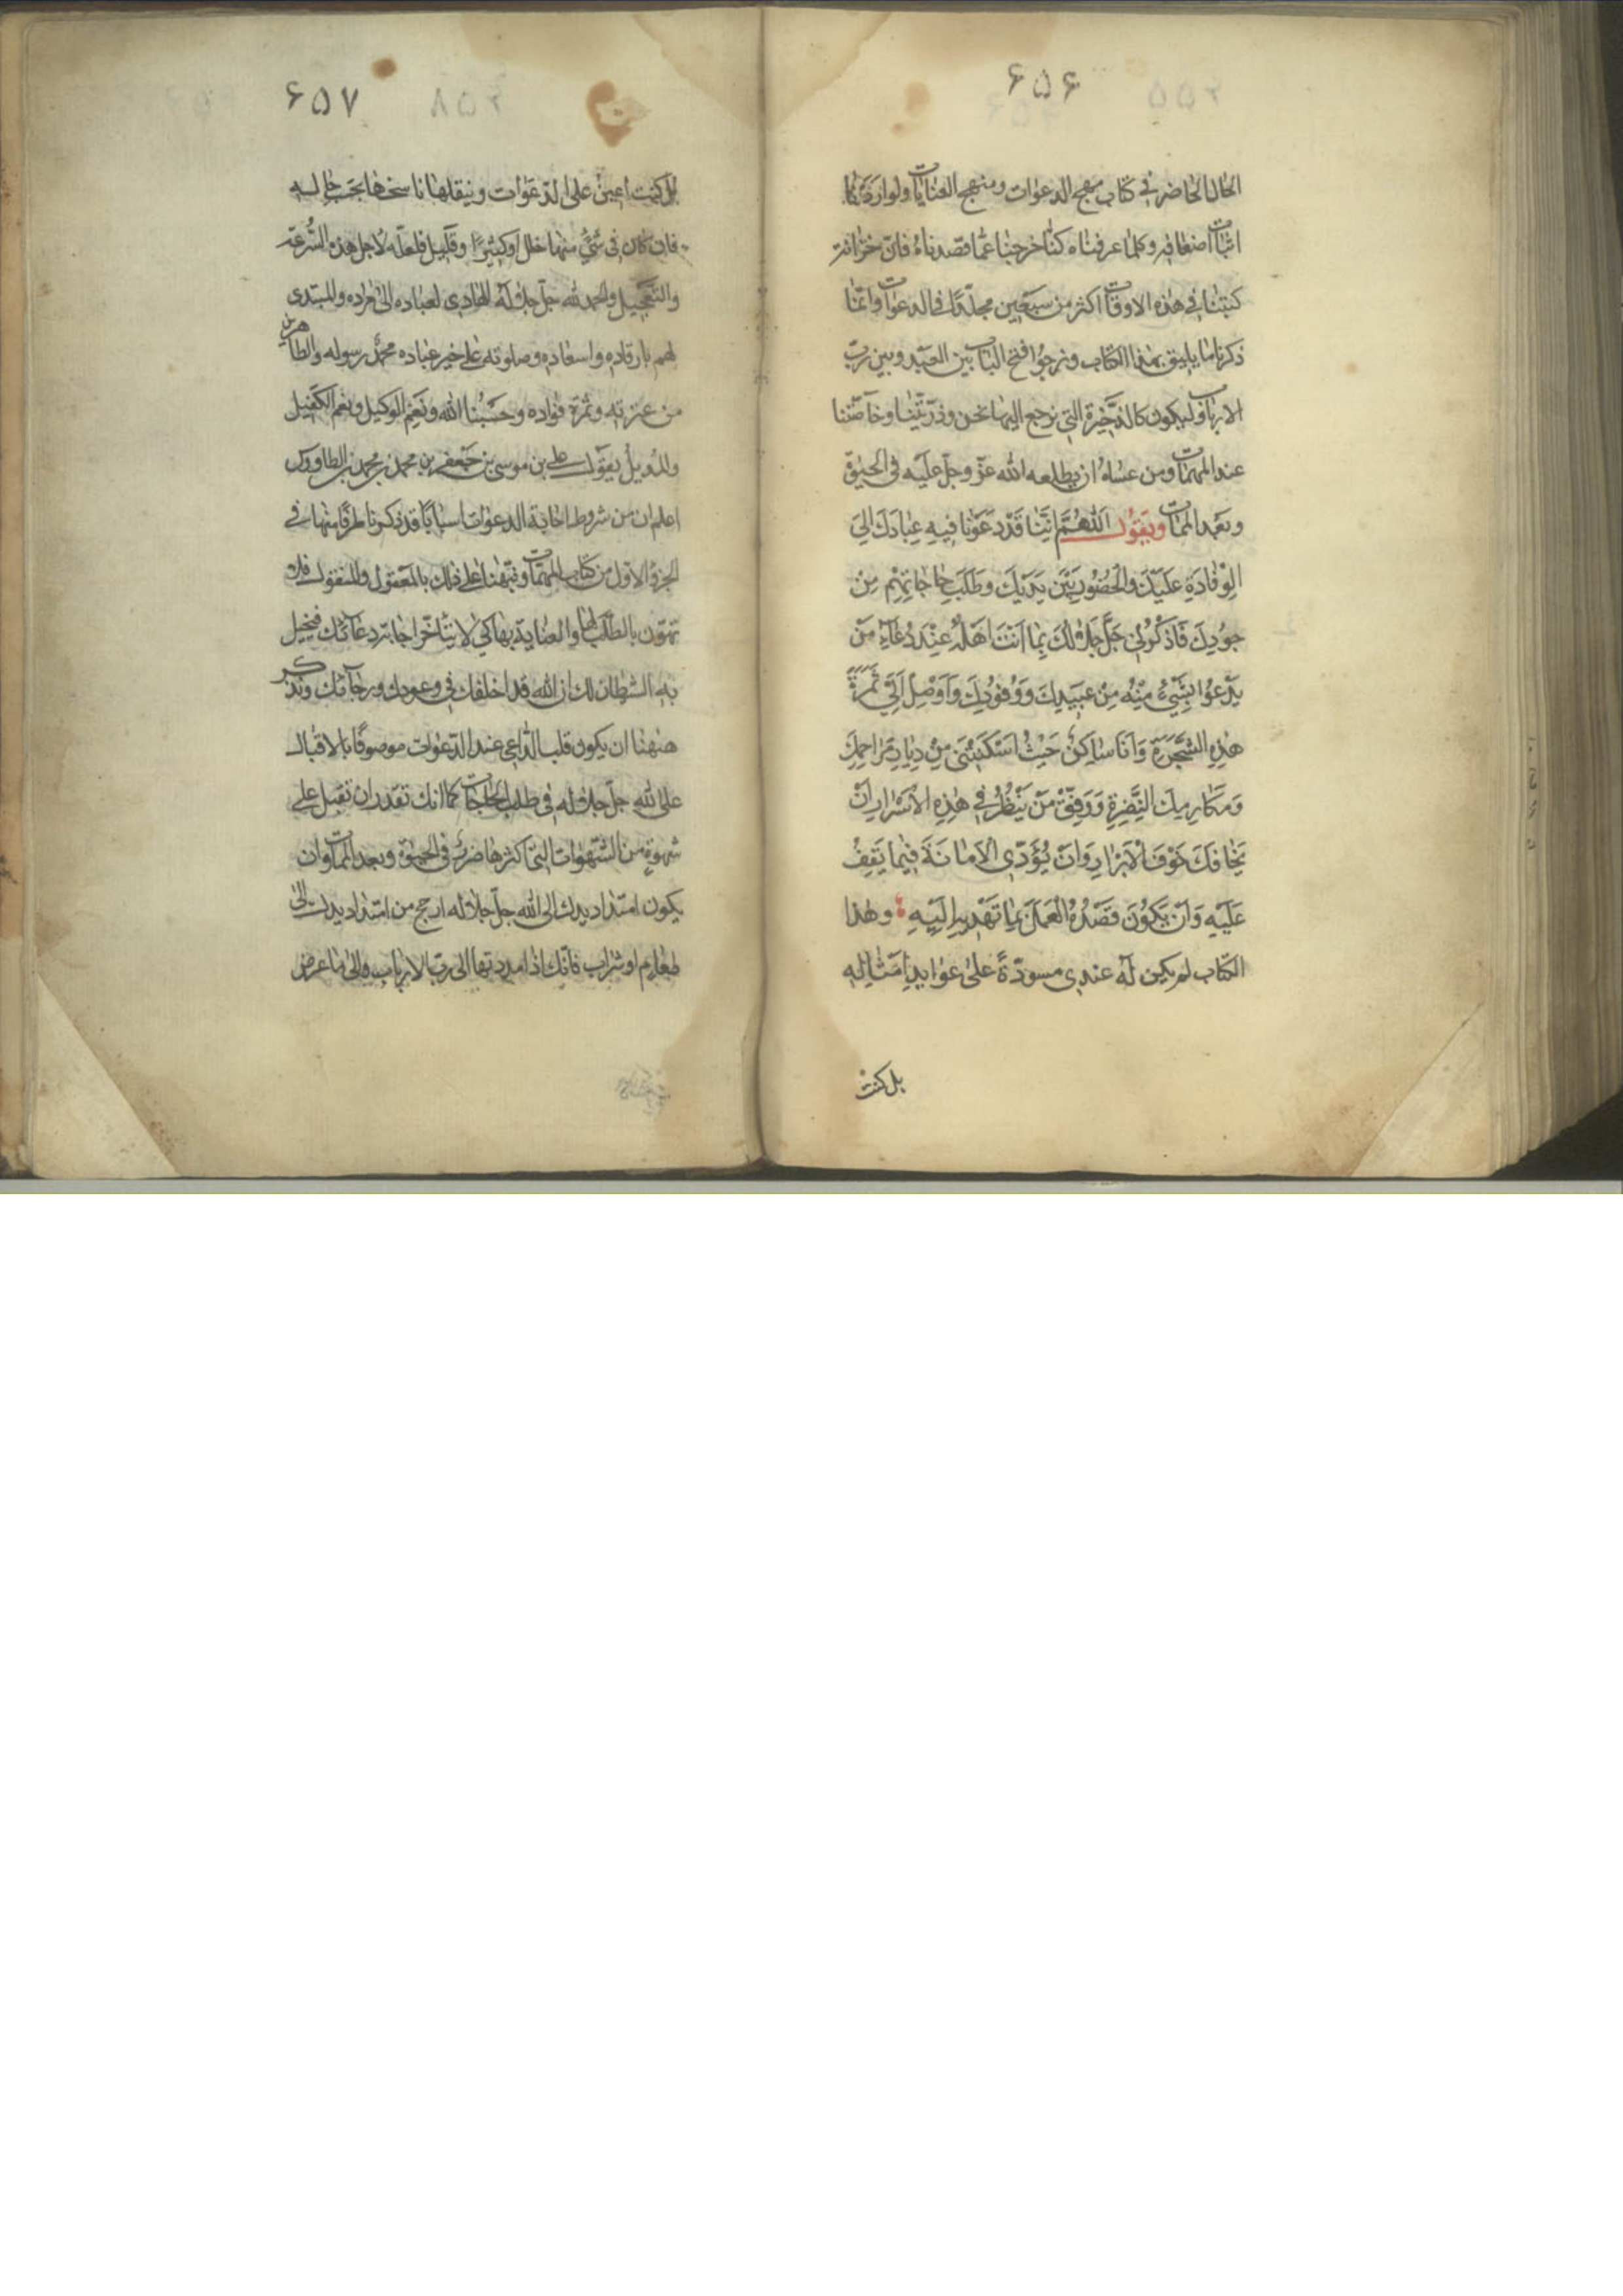 ۶۵۶
الحال الحاضر في كتاب مهج الدعوات ومنهج العنايات ولو اردنا
اثبات اضعافه وكلما عرفناه كنا خرجنا عما قصدناه فان خزانة
كتبنا في هذه الاوقات اكثر من سبعين مجلدا في الدعوات وانما
ذكرنا ما يليق بهذا الكتاب ونرجوا فتح الباب بين العبد وبين رب
الارباب وليكون كالذخيرة التي نرجع اليها نحن وذريتنا وخاصتنا
عند المهمات ومن عساه ان يطلعه الله عز وجل عليه في الحيوة
وبعد الممات ويقول اَللّٰهُمَّ اِنَّنَا قَدْ دَعَوْنَا فِيهِ عِبَادَكَ اِلَى
الْوِفَادَةِ عَلَيْكَ وَالْحُضُورِ بَيْنَ يَدَيْكَ وَطَلَبِ حَاجَاتِهِمْ مِنْ
جُودِكَ فَاذْكُرْنِي جَلَّ جَلَالُكَ بِمَا اَنْتَ اَهْلُهُ عِنْدَ دُعَاءِ مَنْ
يَدْعُوا بِشَيْءٍ مِنْهُ مِنْ عَبِيدِكَ وَوُفُودِكَ وَاَوْصِلْ اِلَيَّ ثَمَرَةَ
هٰذِهِ الشَّجَرَةِ وَاَنَا سَاكِنٌ حَيْثُ اَسْكَنْتَنِي مِنْ دِيَارِ مَرَاحِمِكَ
وَمَكَارِمِكَ النَّضِرَةِ وَوَفِّقْ مَنْ يَنْظُرُ فِي هٰذِهِ الْاَسْرَارِ اَنْ
يَخَافَكَ خَوْفَ الْاَبْرَارِ وَاَنْ يُؤَدِّيَ الْاَمَانَةَ فِيمَا يَقِفُ
عَلَيْهِ وَاَنْ يَكُونَ قَصْدُهُ الْعَمَلَ بِمَا تَهْدِيهِ اِلَيْهِ وهذا
الكتاب لم يكن له عندي مسودة على عوايد امثاله
بل كنت
۶۵۷
بل كنت اعين على الدعوات وينقلها ناسخها بحسب حاله
فان كان في شيء منها خلل او كثيرا وقليل فلعله لاجل هذه السرعة
والتعجيل والحمد لله جل جلاله الهادي لعباده الى مراده والمبتدي
لهم بارفاده واسعاده وصلوته على خير عباده محمد رسوله والطاهرين
من عترته وثمرة فؤاده وحسبنا الله ونعم الوكيل ونعم الكفيل
والدويل يقول علي بن موسى بن جعفر بن محمد بن محمد بن الطاووس
اعلم ان من شروط اجابة الدعوات اسبابا قد ذكرنا طرفا منها في
الجزء الاول من كتاب المهمات ونبهنا على ذلك بالمعقول والمنقول فلا
تهون بالطلب لها والعناية بها كي لا يتاخر اجابة دعائك فيخيل
به الشيطان لك ان الله قد اخلفك في وعودك ورجائك ونذكر
ههنا ان يكون قلب الداعي عند الدعوات موصوفا بالاقبال
على الله جل جلاله في طلب الحاجات كما انك تقدر ان تقبل على
شهوة من الشهوات التي اكثرها ضرر في الحيوة وبعد الممات وان
يكون امتداد يدك الى الله جل جلاله ارجح من امتداد يدك الى
طعام او شراب فانك اذا مددتها الى رب الارباب والى ما عرض